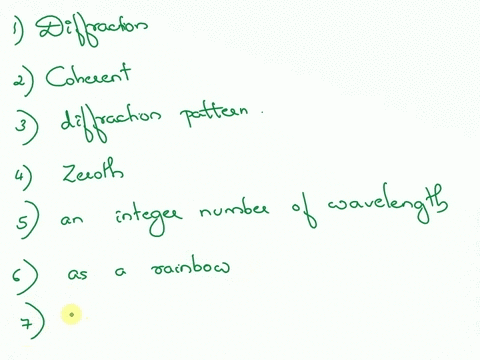 1) Diffraction
2) Coherent
3) diffraction pattern.
4) Zeroth
5) an integer number of wavelength
6) as a rainbow
7)